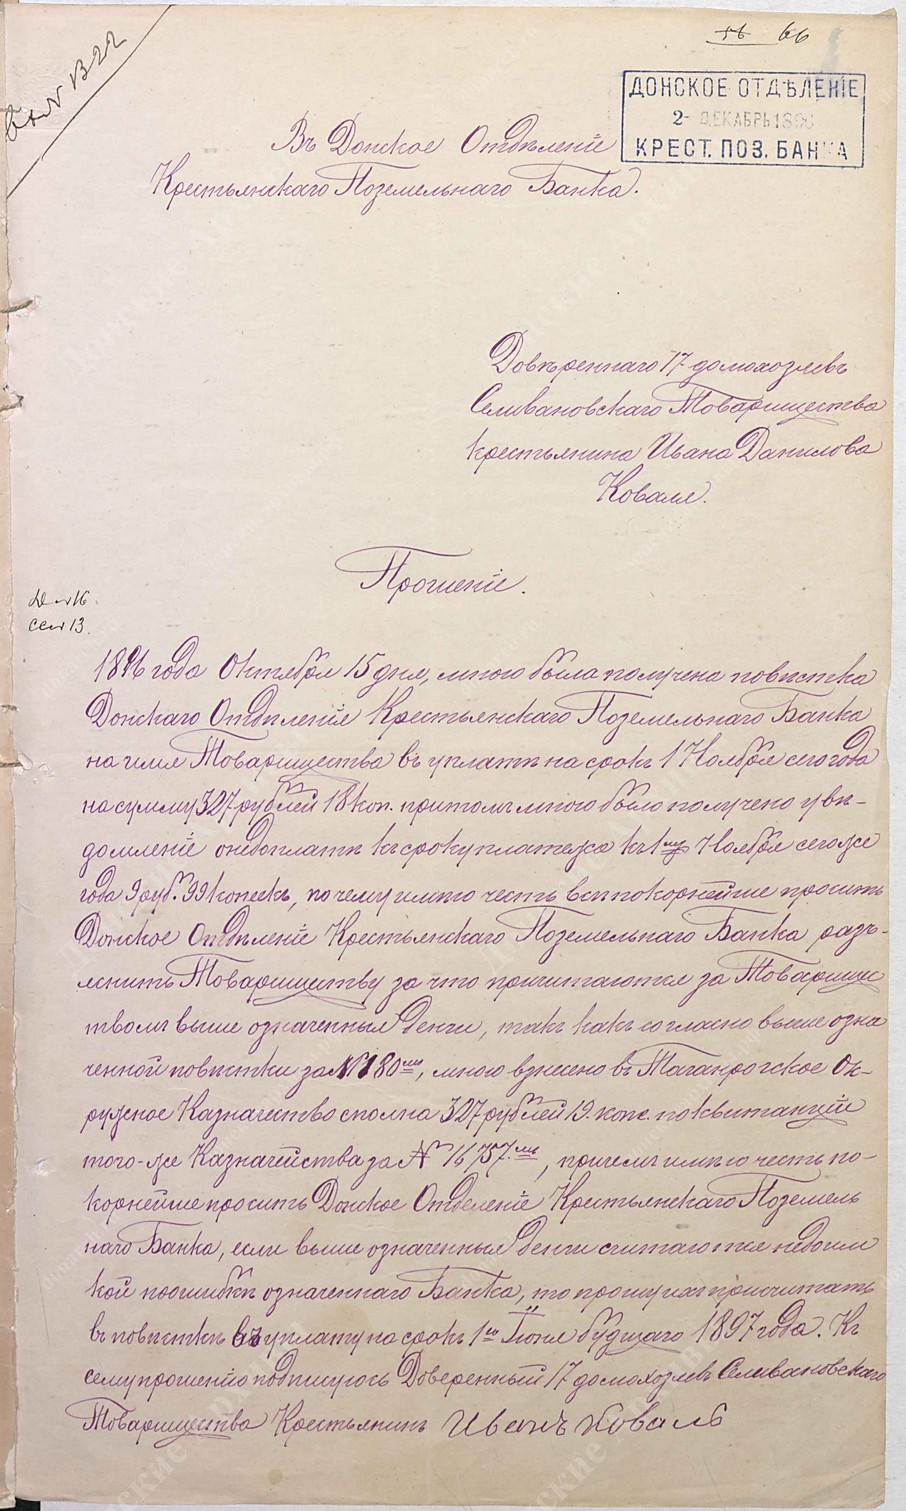 56 66
вх № 1322
ДОНСКОЕ ОТДѢЛЕНІЕ
2- ДЕКАБРЬ 1896
КРЕСТ. ПОЗ. БАНКА
Въ Донское Отдѣленіе
Крестьянскаго Поземельнаго Банка.
Довѣреннаго 17 домохозяевъ
Селивановскаго Товарищества
крестьянина Ивана Данилова
Коваля.
Прошеніе.
1896 года Октября 15 дня, мною была получена повѣстка
Донскаго Отдѣленія Крестьянскаго Поземельнаго Банка
на имя Товарищества въ уплатѣ на срокъ 1 Ноября сего года
на сумму 327 рублей 18 коп. притомъ мною было получено увѣ-
домленіе о недоплатѣ къ сроку платежа къ 1му Ноября сего же
года 9 руб. 99 копеекъ, почему имѣю честь всепокорнейше просить
Донское Отдѣленіе Крестьянскаго Поземельнаго Банка разъ-
яснить Товариществу за что причитаются за Товарищес
твомъ выше означенныя деньги, такъ какъ согласно выше озна
ченной повѣстки за № 180мъ, мною взнесено въ Таганрогское Ок-
ружное Казначество сполна 327 рублей 19. копе. по квитанціи
того-же Казначейства за № 16757.мъ, причемъ имѣю честь по-
корнейше просить Донское Отделеніе Крестьянскаго Поземель
наго Банка, если выше означенныя деньги считаются недоим
кой по ошибкѣ означеннаго Банка, то прошу ихъ причитать
въ повѣсткѣ въ уплату на срокъ 1го Іюня будущаго 1897 года. Къ
сему прошенію подпишусь Доверенный 17 домохозяевъ Селивановскаго
Товарищества Крестьянинъ Иванъ Коваль